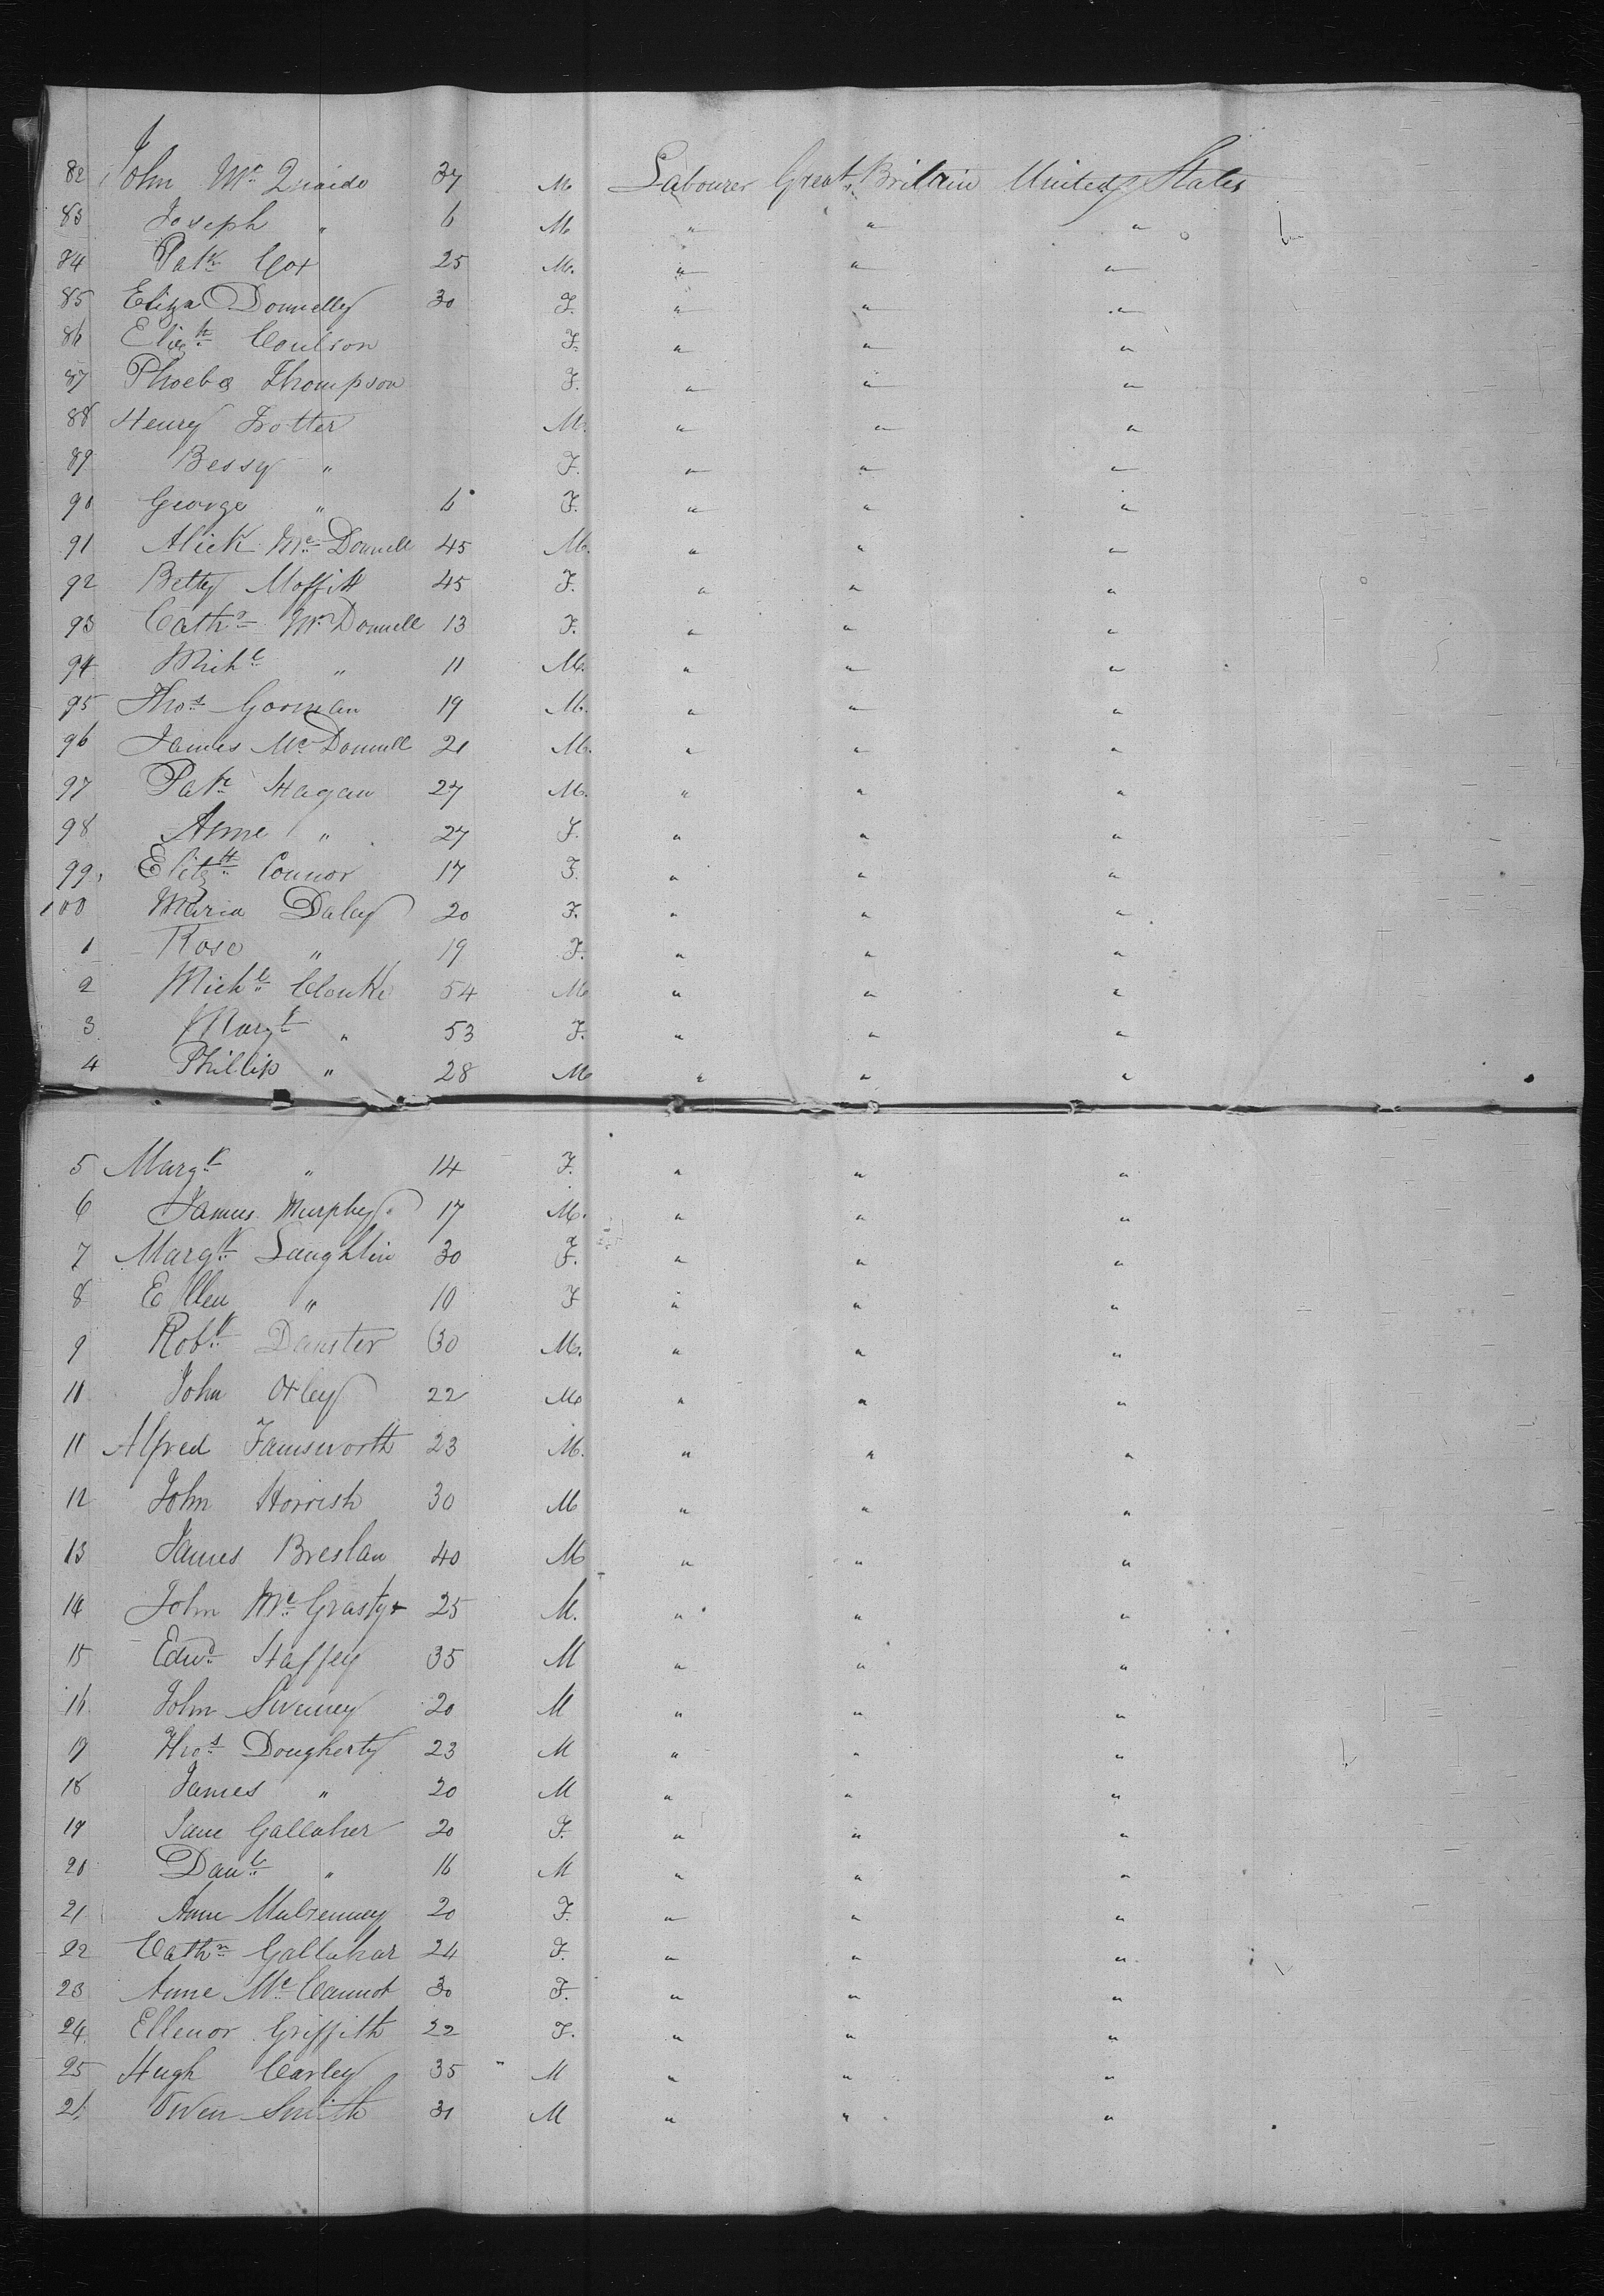 82 John Mc Quaide 37 M Labourer Great Britain United States
83 Joseph " 6 M " " "
84 Patk Cox 25 M. " " "
85 Eliza Donnelly 30 F. " " "
86 Elizth Coulson F. " " "
87 Phoebe Thompson F. " " "
88 Henry Trotter M. " " "
89 Bessy " F. " " "
90 George " 6 F. " " "
91 Alick Mc Donnell 45 M. " " "
92 Betty Moffitt 45 F. " " "
93 Cathn Mc Donnell 13 F. " " "
94 Michl " 11 M. " " "
95 Thos Gorman 19 M. " " "
96 James Mc Donnell 21 M. " " "
97 Patk Hagan 27 M. " " "
98 Anne " 27 F. " " "
99 Elizth Connor 17 F. " " "
100 Maria Daley 20 F. " " "
1 Rose " 19 F. " " "
2 Michl Clouke 54 M " " "
3 Margt " 53 F. " " "
4 Phillip " 28 M " " "
5 Margt " 14 F. " " "
6 James Murphy 17 M. " " "
7 Margt Laughlin 30 F. " " "
8 Ellen " 10 F " " "
9 Robt Danster 30 M. " " "
10 John Oxley 22 M " " "
11 Alfred Farnsworth 23 M. " " "
12 John Horrish 30 M " " "
13 James Breslan 40 M " " "
14 John Mc Grasty 25 M. " " "
15 Edwd Haffey 35 M " " "
16 John Sweeney 20 M " " "
17 Thos Dougherty 23 M " " "
18 James " 20 M " " "
19 Jane Gallaher 20 F. " " "
20 Danl " 16 M " " "
21 Anne Mulrenney 20 F. " " "
22 Cathn Gallahar 24 F. " " "
23 Anne Mc Cannot 30 F. " " "
24 Ellenor Griffith 22 F. " " "
25 Hugh Carley 35 M " " "
26 Owen Smith 31 M " " "